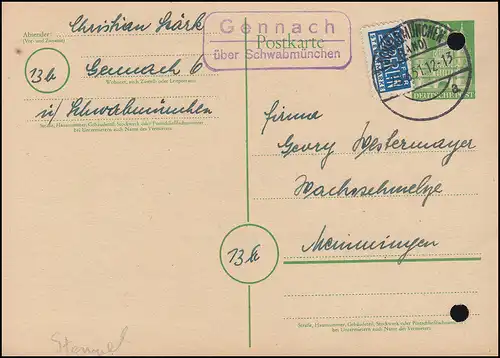 Absender:
(Vor- und Zuname)
Christian Stärk
13b
Gennach 6
Wohnort, auch Zustell- oder Leitpostamt
ü/ Schwabmünchen
Straße, Hausnummer, Gebäudeteil, Stockwerk oder Postschließfachnummer,
bei Untermietern auch Name des Vermieters
Gennach
über Schwabmünchen
Postkarte
MÜNCHEN
51.12-13
a
DEUTSCHE POST
Firma
Georg Westermayer
Wachsschmelze
13b
Memmingen
Straße, Hausnummer, Gebäudeteil, Stockwerk oder Postschließfachnummer,
bei Untermietern auch Name des Vermieters
Stempel